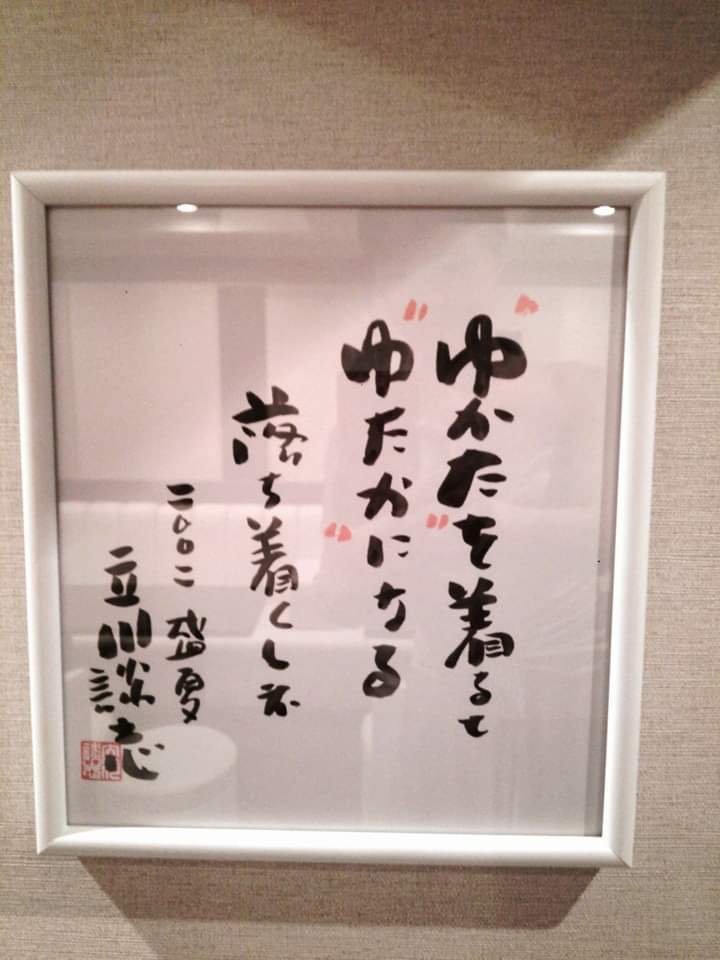 "ゆかた"を着ると
"ゆたか"になる
落ち着くしネ
二〇〇二 盛夏
立川談志